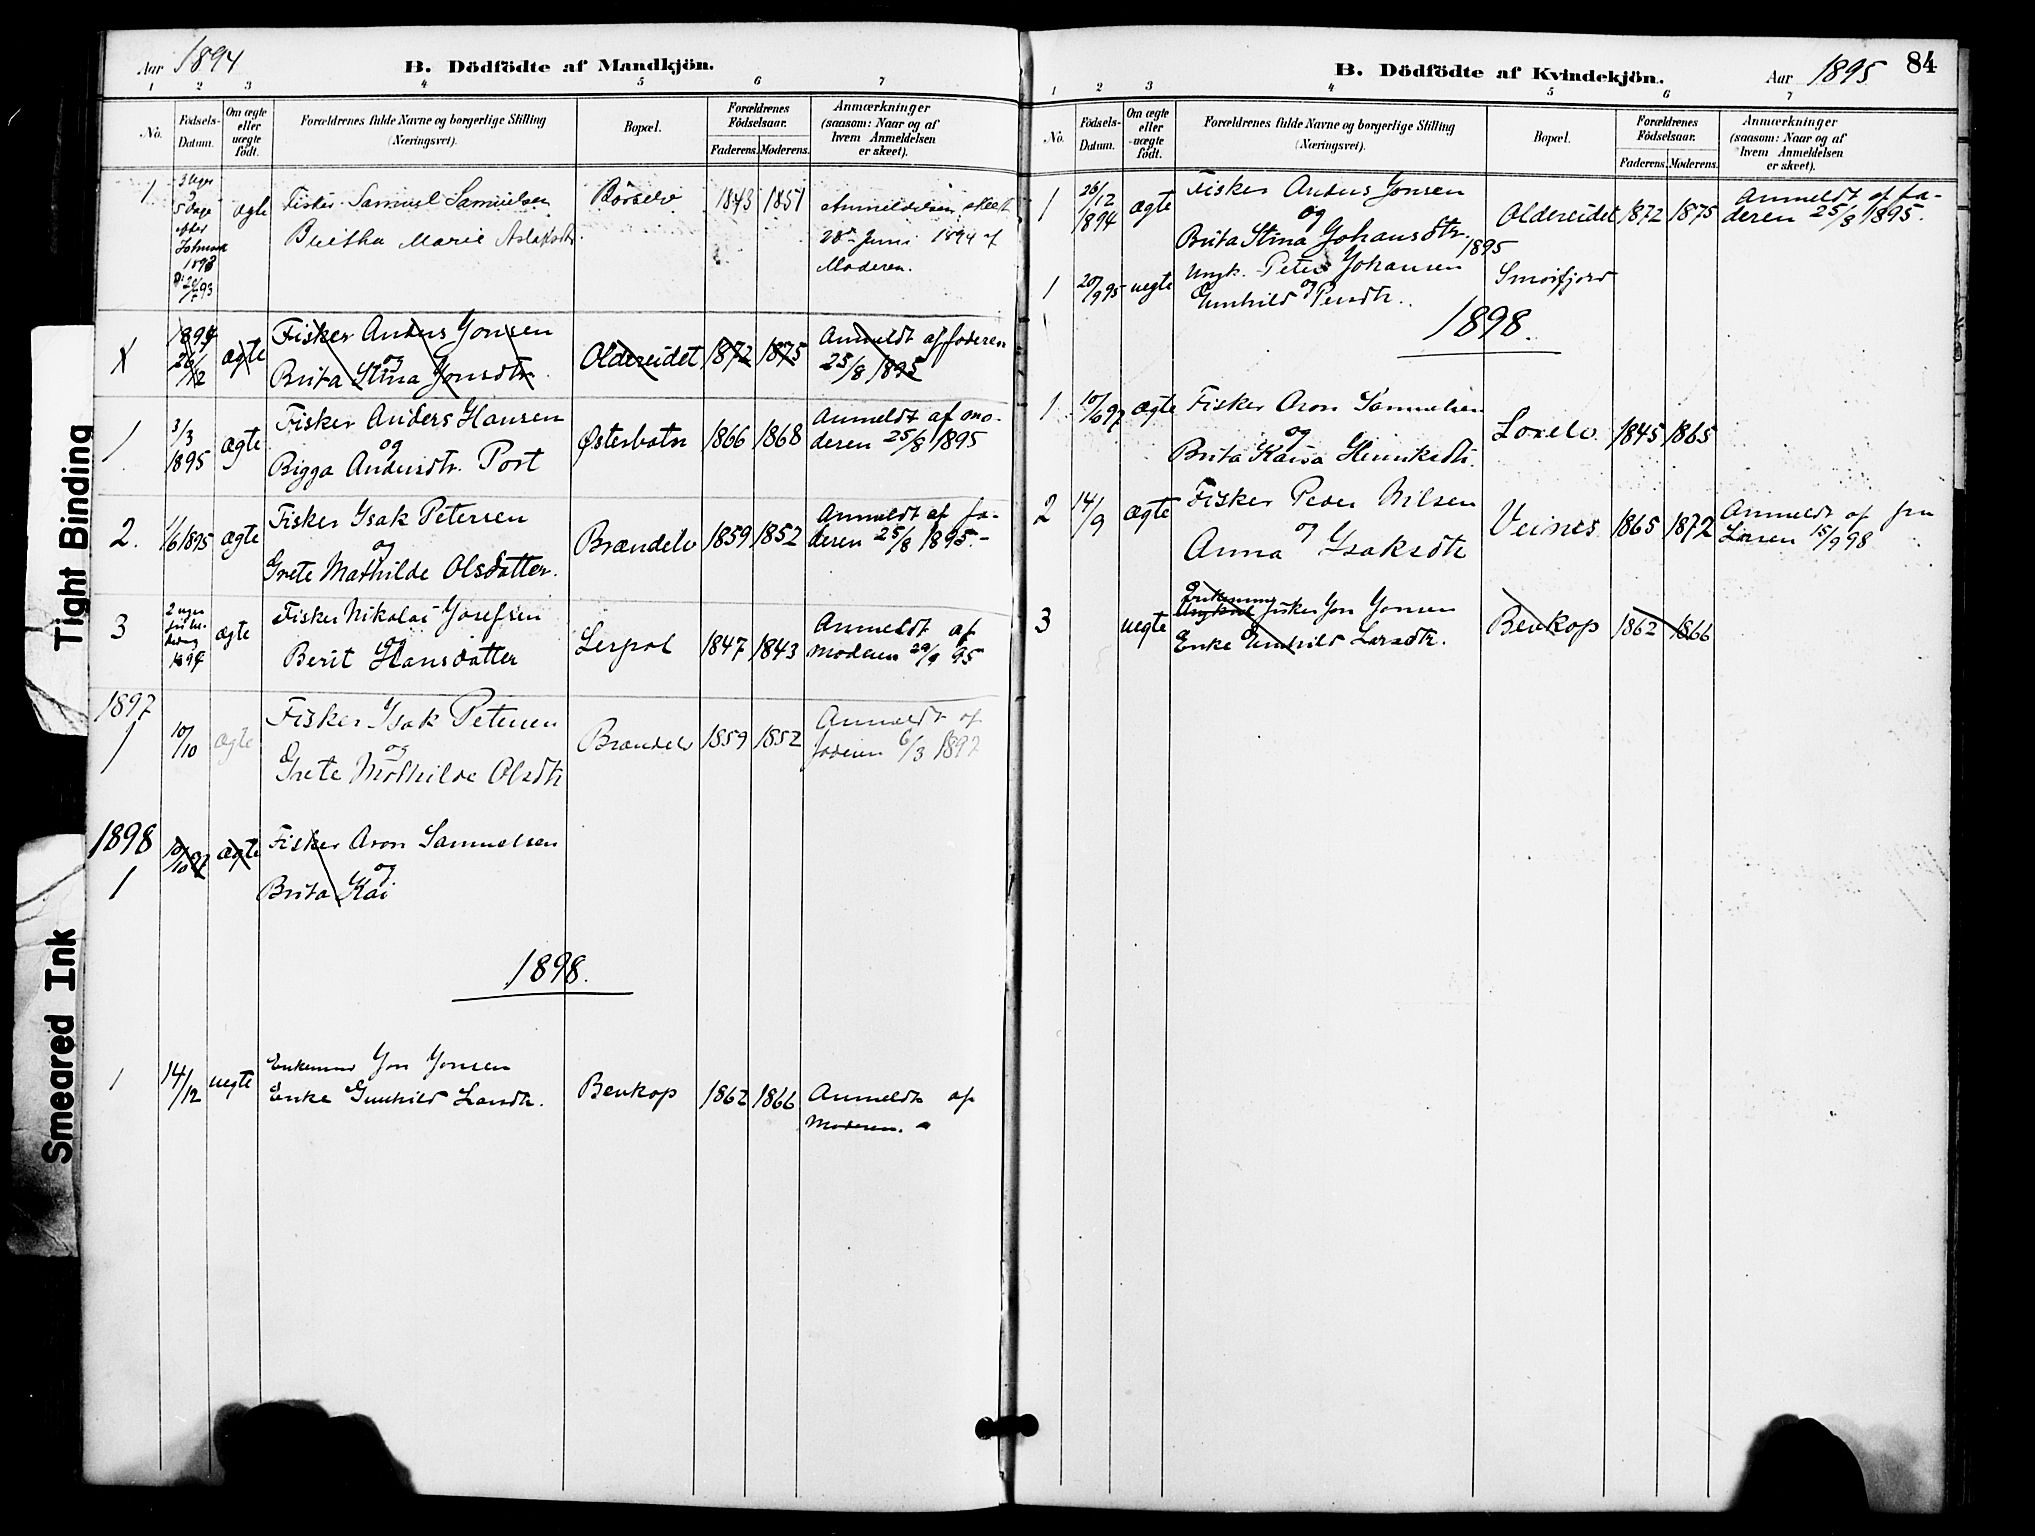 Aar 1894
B. Dödfödte af Mandkjön.
1 2 3 4 5 6 7
No.
Födsels-
Datum.
Om ægte
eller
uægte
født.
Forældrenes fulde Navne og borgerlige Stilling
(Næringsvei).
Bopæl.
Forældrenes
Födselsaar.
Faderens. Moderens.
Anmærkninger
(saasom: Naar og af
hvem Anmeldelsen
er skeet).
1
3 Uger
5 Dage
efter
1893
ægte
Fisker Samuel Samuelsen
Marie
Børselv
1843 1851
Anmeldelsen skeet
Juni 1894 af
Moderen.
1894
26/12
ægte
Fisker Anders Jonsen
og
Brita Stina Jonsdtr.
Oldereidet
1872 1875
Anmeldt af faderen
25/8 1895
1
3/3
1895
ægte
Fisker Anders Hansen
og
Bigga Andersdtr. Port
Østerbotn
1866 1868
Anmeldt af mo-
deren 25/8 1895
2.
1/6 1895
ægte
Fisker Isak Petersen
og
Grete Mathilde Olsdatter.
Brændelv
1859 1852
Anmeldt af fa-
deren 25/8 1895.-
3
2 uger
1894
ægte
Fisker Nikolai Josefsen
og
Berit Hansdatter
Lerpol
1847 1843
Anmeldt af
moderen 29/9 95
1897
1
10/10
ægte
Fisker Isak Petersen
og
Grete Mathilde Olsdtr
Brændelv
1859 1852
Anmeldt af
faderen 6/3 1897
1898
1
10/10 97
ægte
Fisker Aron Samuelsen
og
Brita Kai
1898.
1
14/12
uegte
Enkemand Jon Jonsen
Enke Gunhild Larsdtr.
Benkop
1862 1866
Anmeldt af
Moderen.
B. Dödfödte af Kvindekjön.
Aar 1895
84
1 2 3 4 5 6 7
No.
Födsels-
Datum.
Om ægte
eller
uægte
födt.
Forældrenes fulde Navne og borgerlige Stilling
(Næringsvei).
Bopæl.
Forældrenes
Födselsaar.
Faderens. Moderens.
Anmærkninger
(saasom: Naar og af
hvem Anmeldelsen
er skeet).
1
26/12
1894
ægte
Fisker Anders Jonsen
og
Brita Stina Johansdtr.
Oldereidet
1872 1875
Anmeldt af fa-
deren 25/8 1895.
1895
1
20/9 95
uegte
Ungk. Peter Johansen
og
Gunhild Persdtr.
Smørfjord
1898.
1
10/10 97
ægte
Fisker Aron Samuelsen
og
Brita Kaisa Henriksdtr.
Laxelv
1845 1865
2
14/9
ægte
Fisker Peder Nilsen
og
Anna Isaksdtr
Veines
1865 1872
Anmeldt af fru
15/9 98
3
uegte
Enkemand
Ungkarl fisker Jon Jonsen
Enke Gunhild Larsdtr.
Benkop
1862 1866
Tight Binding
Smeared Ink